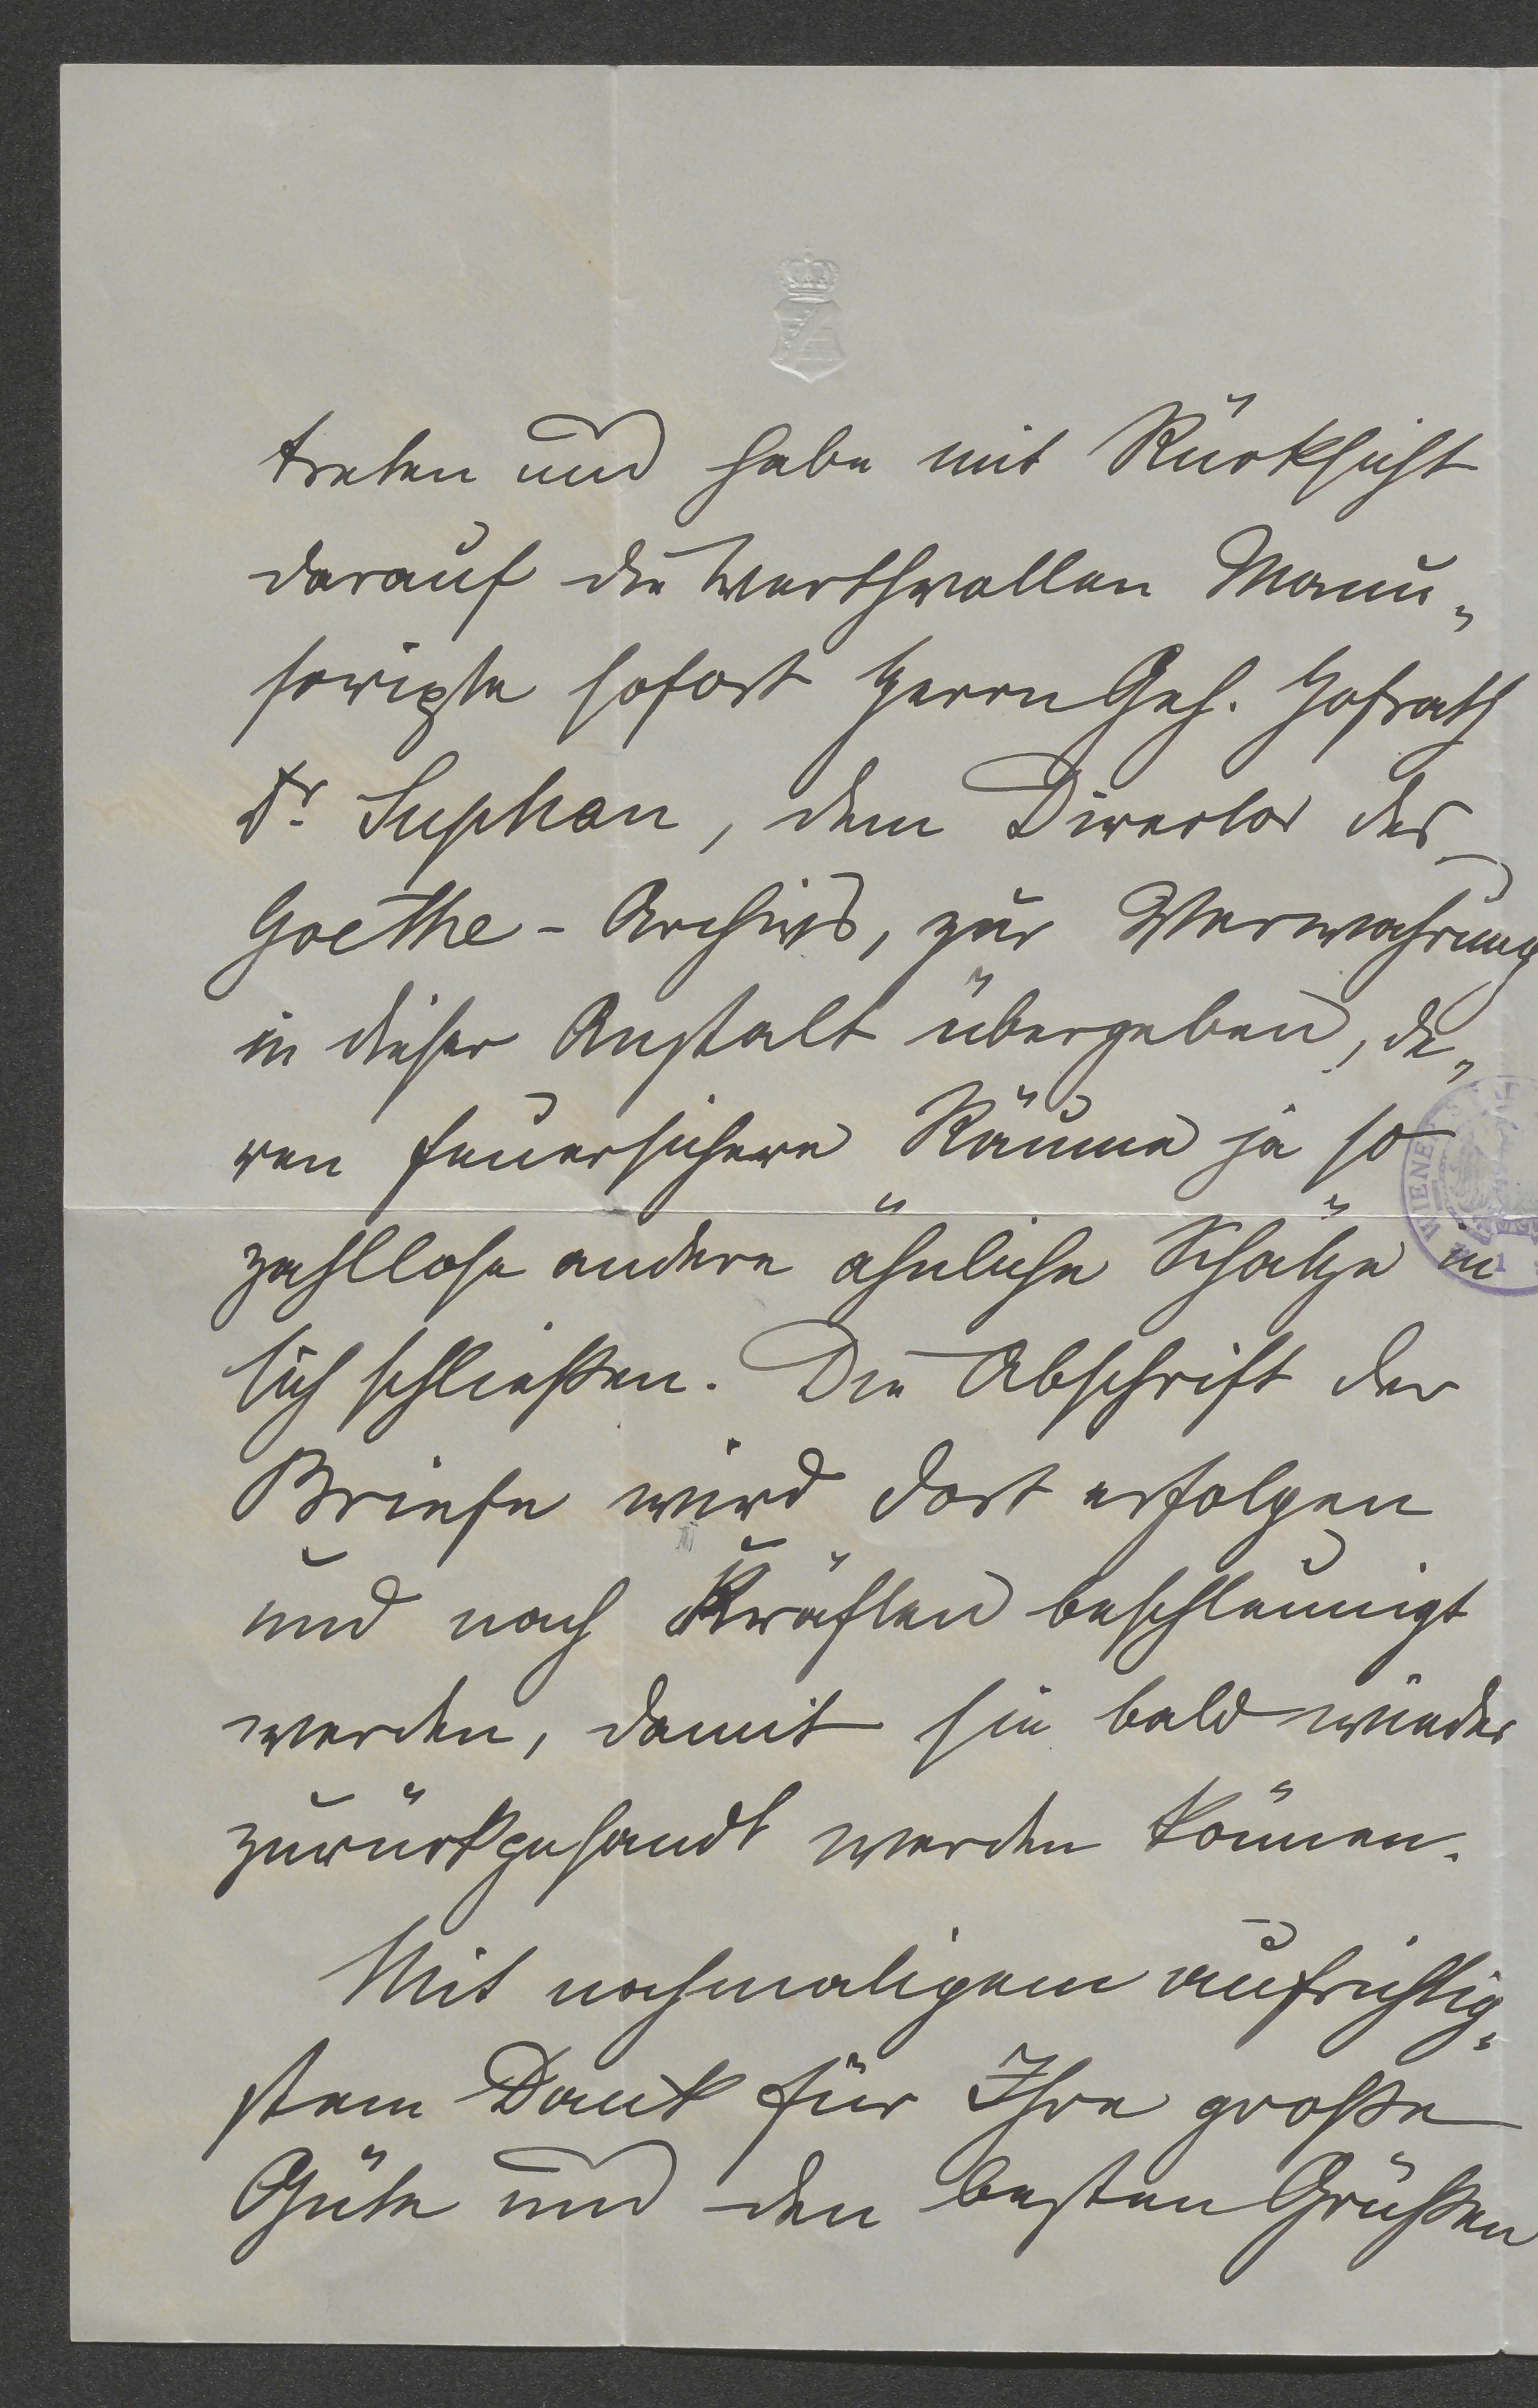 treten und habe mit Rücksicht
darauf die werthvollen Manu„
scripte sofort Herrn Geh. Hofrath
Dr. Suphan, dem Director des
Goethe-Archivs, zur Verwahrung
in dieser Anstalt übergeben, de„
ren feuersichere Räume ja so
WIENE
zahllose andere ähnliche Schätze in
sich schließen. Die Abschrift der
Briefe wird dort erfolgen
und nach Kräften beschleunigt
werden, damit sie bald wieder
zurückgesandt werden können.
Mit nochmaligem aufrichtig„
stem Dank für Ihre große
Güte und den besten Grüßen